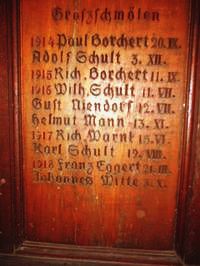 Großschmölen
1914 Paul Borchert 20. IX.
Adolf Schult 3. XII.
1915 Rich. Borchert 11. IX.
1916 Wilh. Schult 11. VII.
Gust. Niendorf 12. VII.
Helmut Mann 13. XI.
1917 Rich. Warnk 15. VI.
Karl Schult 19. VIII.
1918 Franz Eggert 21. III.
Johannes Witte 3. X.